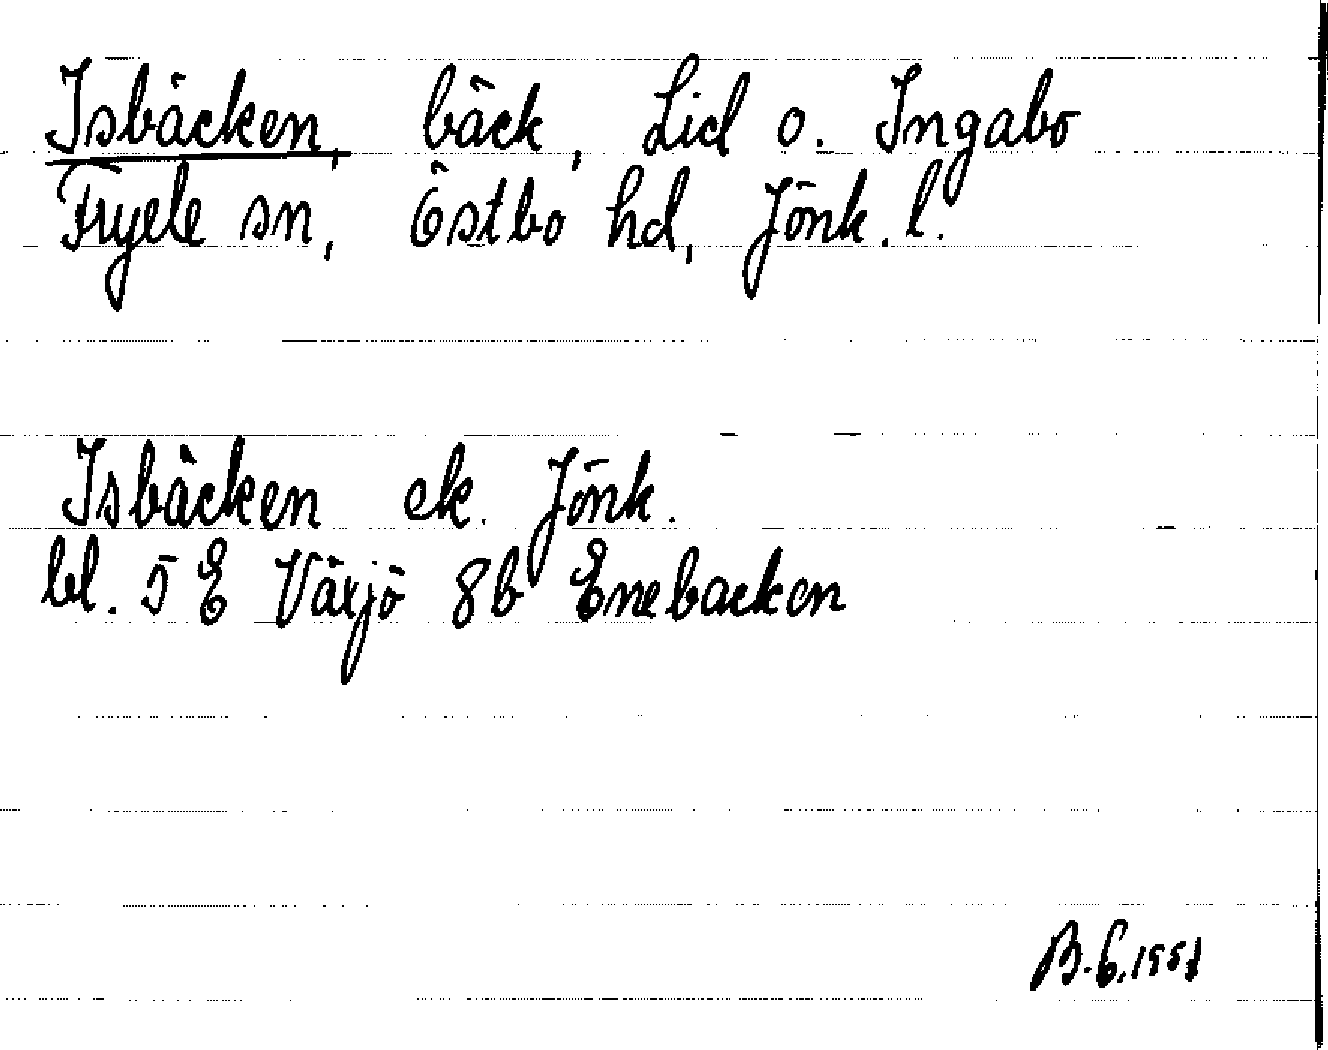 Isbäcken, bäck, Lid o. Ingabo
Fryele sn, Östbo hd, Jönk. l.
Isbäcken ek. Jönk.
bl. 5 E Växjö 8b Enebacken
B.G. 1951